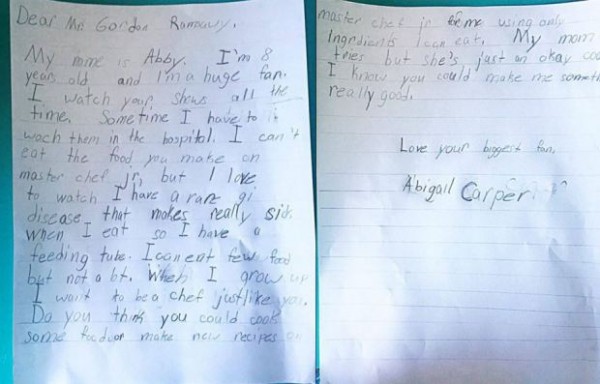 Dear Mr Gordon Ramsawy,
My name is Abby. I'm 8
years old and I'm a huge fan.
I watch your shows all the
time. Sometime I have to
wach them in the hospital. I can't
eat the food you make on
master chef jr, but I love
to watch I have a rare gi
disease that makes really sick
when I eat so I have a
feeding tube. I can eat few food
but not a bt. When I grow up
I want to be a chef just like you.
Do you think you could cook
some food or make new recipes on
master chef jr for me using only
Ingrdients I can eat. My mom
tries but she's just an okay coo
I know you could make me someth
really good.
Love your biggest fan,
Abigail Carper